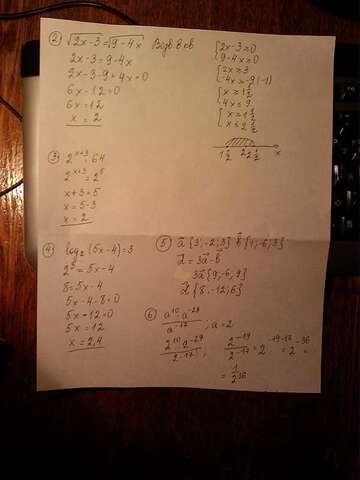 ② √2x-3 = √9-4x Возв. в кв
2x-3=9-4x
2x-3-9+4x=0
6x-12=0
6x=12
x=2
{2x-3≥0
9-4x≥0
{2x≥3
-4x≥-9 (-1)
{x≥1 1/2
4x≤9
{x≥1 1/2
x≤2 1/2
1 1/2 2 2 1/2 x
③ 2^{x+3}=64
2^{x+3}=2^5
x+3=5
x=5-3
x=2
④ log₂(5x-4)=3
2^3=5x-4
8=5x-4
5x-4-8=0
5x-12=0
5x=12
x=2,4
⑤ a{3,-2,3} b{1,-6,3}
d=3a-b
3a{9,-6,9}
d{8,-12,6}
⑥ a^{10}·a^{-29}/a^{-17}, a=2
2^{10}·2^{-29}/2^{-17}; 2^{-19}/2^{-17}=2^{-19-17}=2^{-36}
=1/2^{36}